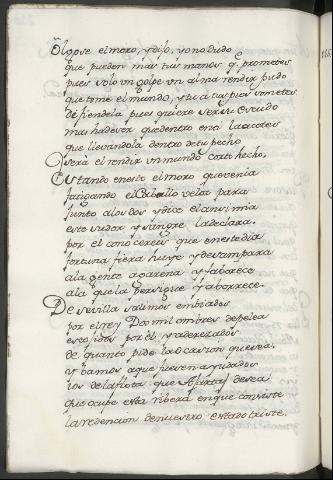 Olgose el moro, y dijo, yo no dudo
que pueden mas tus manos q. prometes
pues solo un golpe un alma rendir pudo
que teme el mundo, y tu a tus pies sometes
defiendela pues quiere ser su escudo
mas ha de ser que dentro en el la
que llevandola dentro de tu pecho
sera el rendir un mundo corto hecho.
Estando en esto el moro que venia
fatigando el caballo veloz para
junto a los dos y dice el ansi mia
este sudor y sangre la declara.
por el conoceeis que en este dia
fortuna fiera huye y desampara
a la gente agarena y faborece
a la que la persigue y aborrece.
De sevilla salimos embiados
por el rey Dos mil ombres de pelea
escojidos por el, y aderezados
de quanto pide la ocasion que sea.
y bamos a que fuesen ayudados
los de la flota que Axartaf desea
que ocupe esta ribera en que consiste
la redencion de nuestro estado triste.